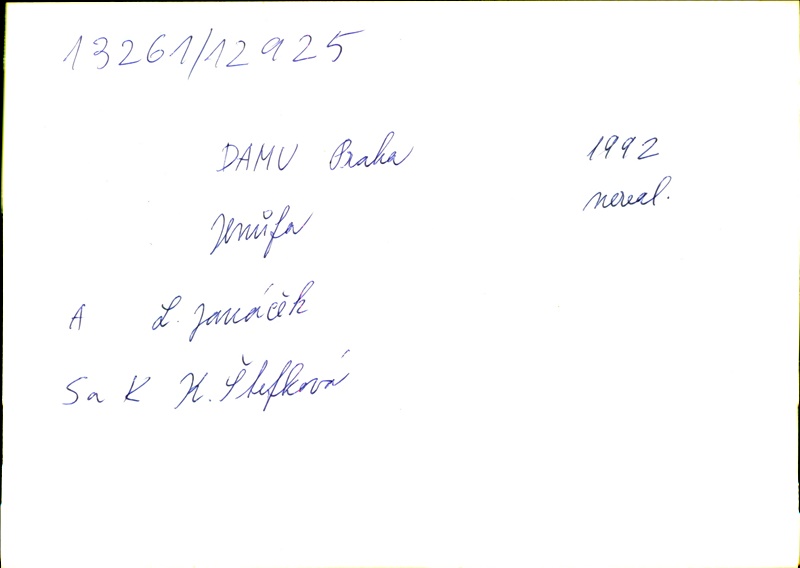 13261/12925
DAMU Praha 1992
Jenůfa nereal.
A L. Janáček
S a K K. Štefková